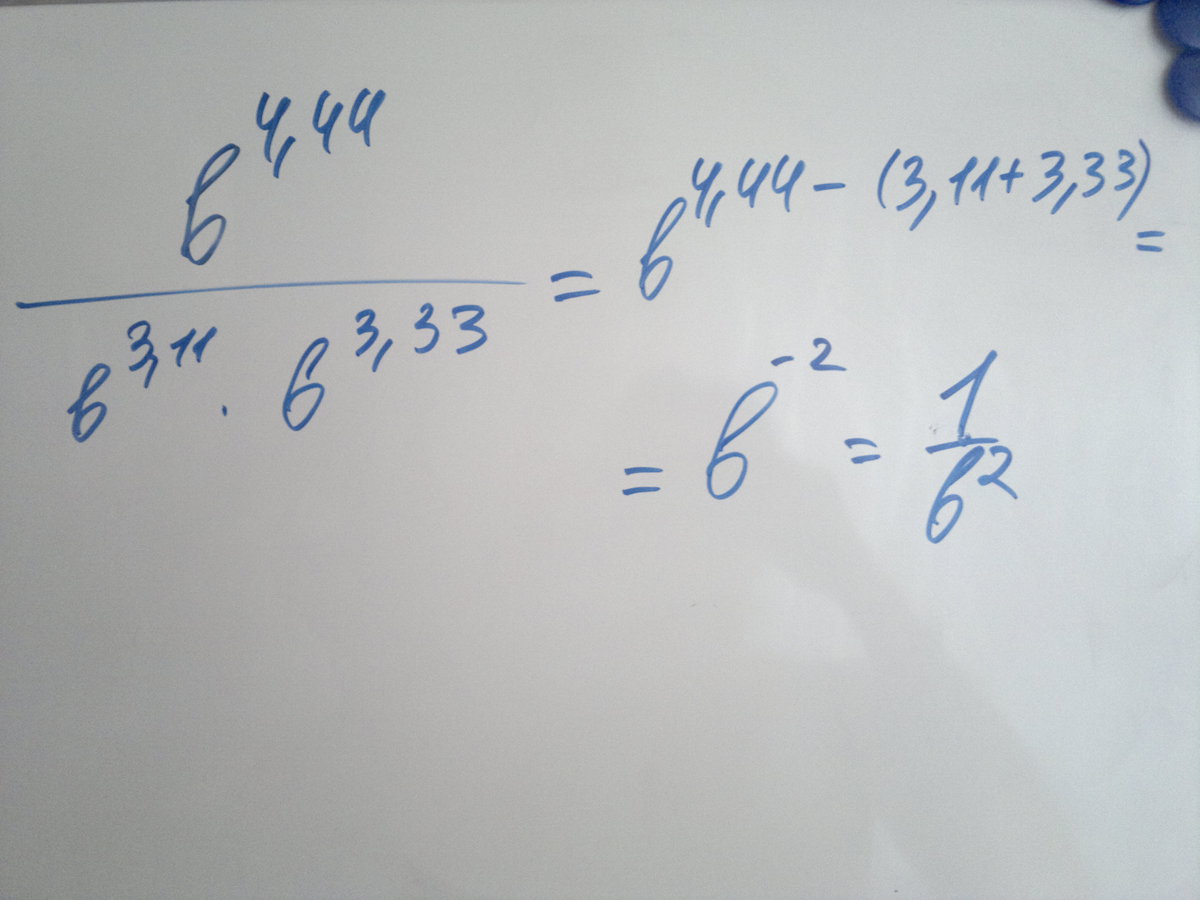 в^4,44 / (в^3,11 · в^3,33) = в^4,44 − (3,11 + 3,33) =
= в^−2 = 1 / в^2